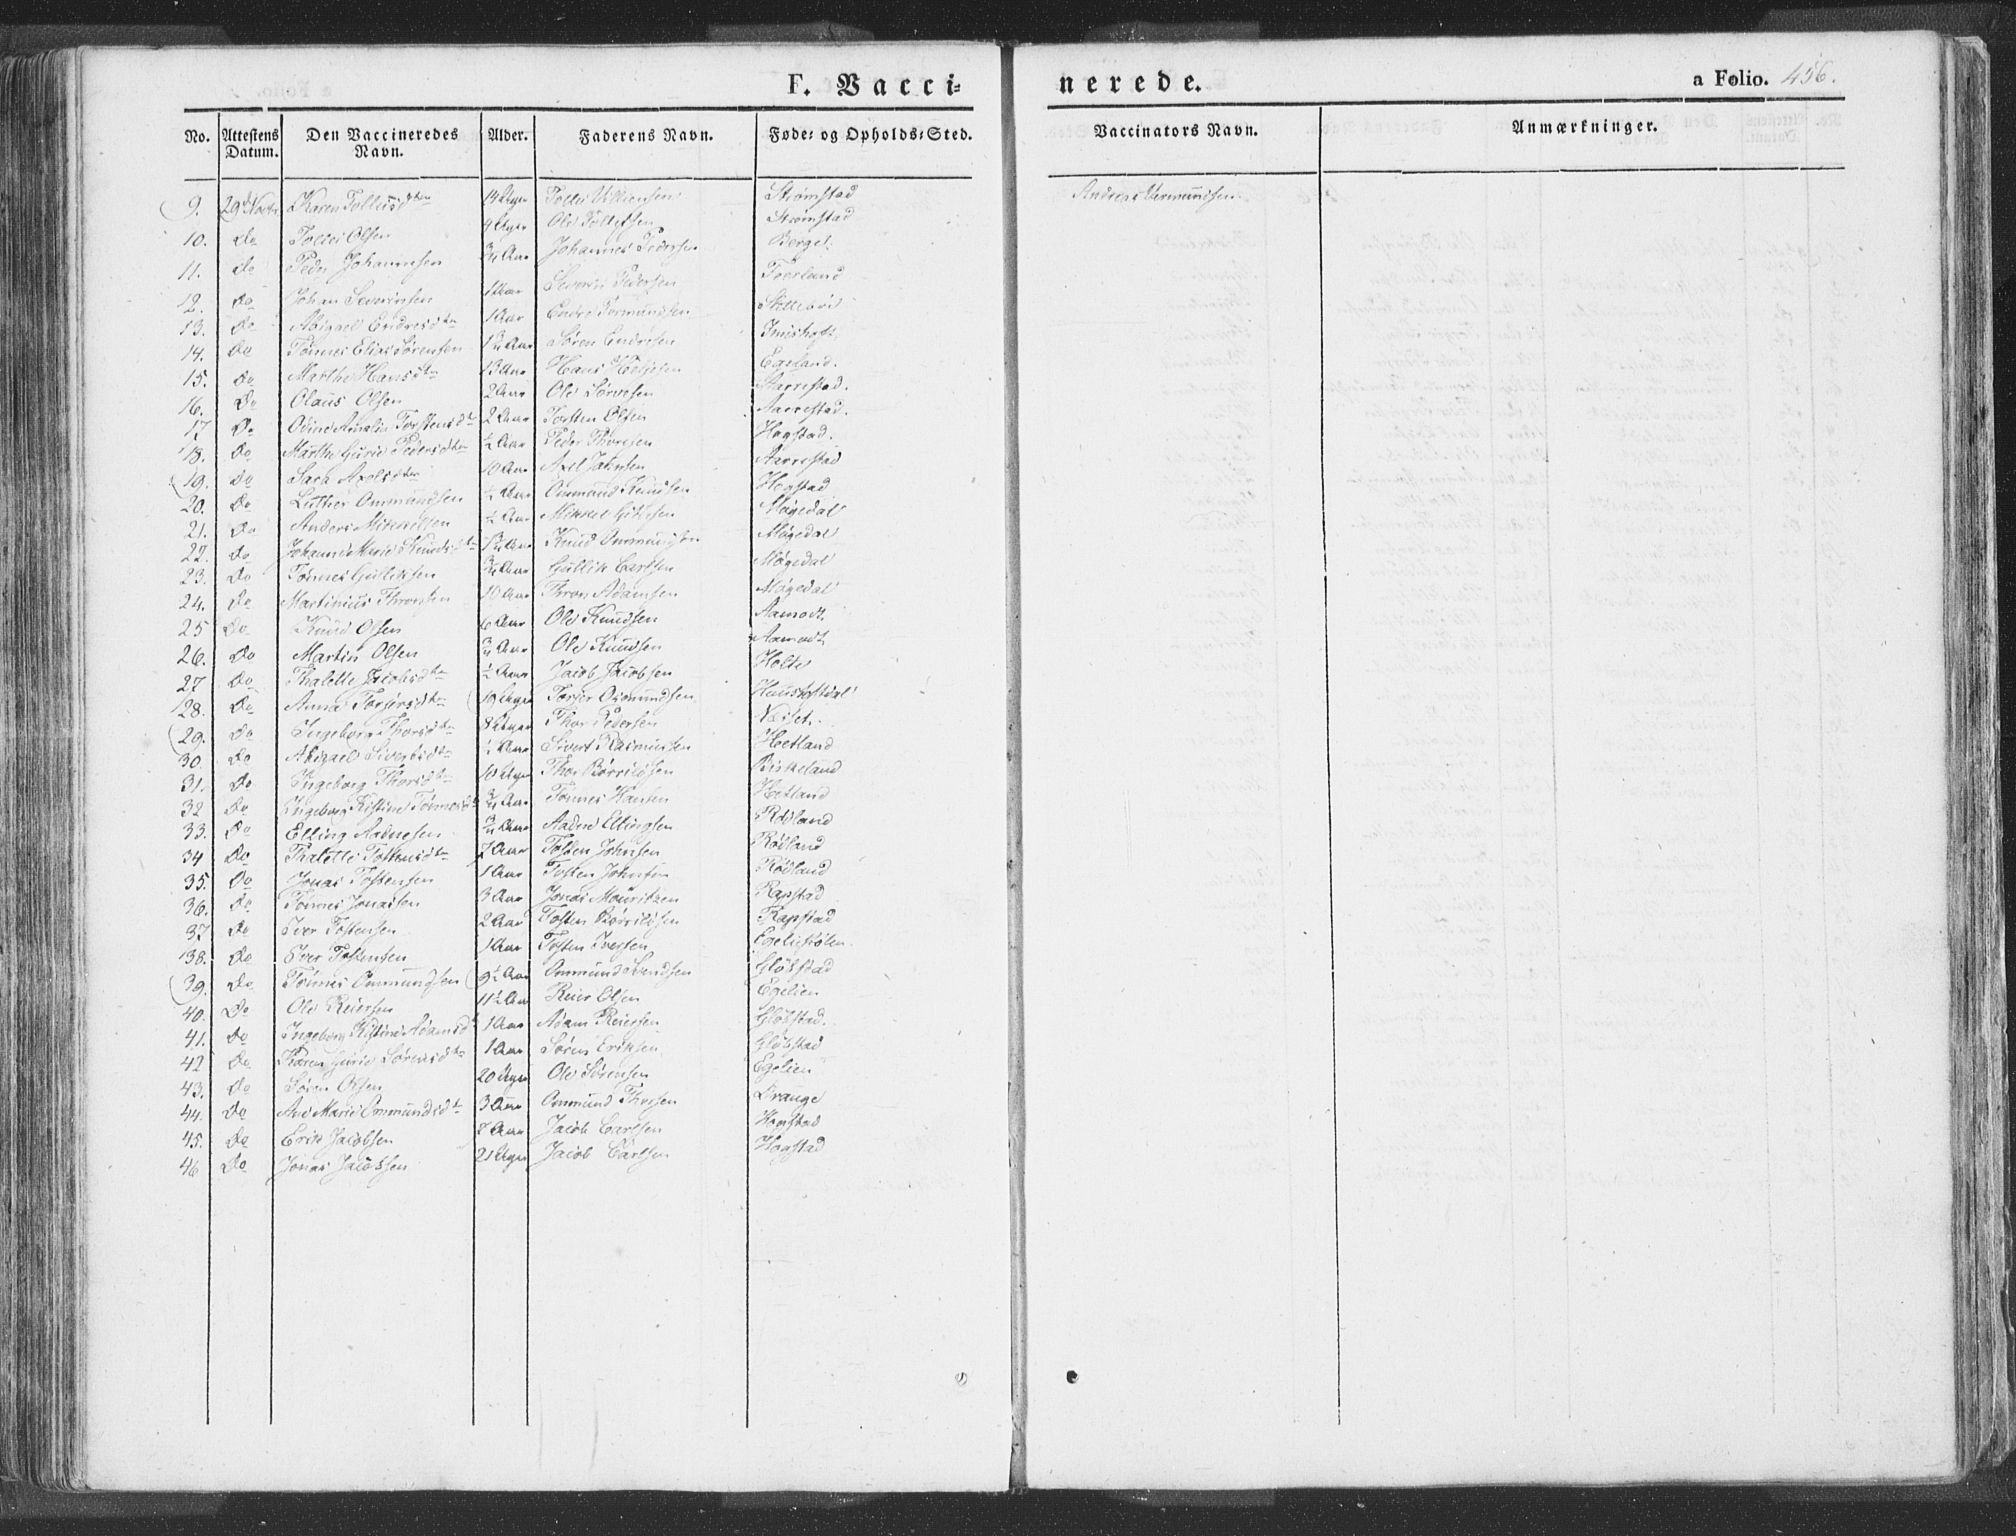 F. Vacci-
nerede.
a Folio. 456.
No. Attestens Datum. Den Vaccineredes Navn. Alder. Faderens Navn. Føde- og Opholds-Sted. Vaccinators Navn. Anmærkninger.
9. 29 Novbr Karen Tolleisdtr 14 Uger Tollei Strømstad Andreas Vermundsen
10. Do Tollei Olsen 9 Uger Ole Tolleifsen Strømstad
11. Do Peder Johannesen 3/4 Aar Johannes Pedersen Berget
12. Do Johan Severinsen 1 Aar Severin Pedersen
13. Do Abigael Endresdtr 1 Aar Endre Tormundsen
14. Do Tønnes Elias Sørensen Aar Søren Endresen
15. Do Marthe Hansdtr 13 Aar Hans
16. Do Olaus Olsen 2 Aar Ole Sørensen Aarrestad.
17 Do Odine Amalia Torstensdtr 2 Aar Torsten Olsen Aarrestad.
18. Do Marthe Gurie Pedersdtr ½ Aar Peder Thoresen Hogstad.
19. Do Sara Axelsdtr 10 Aar Axel Jahnsen Aarrestad
20. Do Luther Ommundsen ½ Aar Ommund Knudsen Hogstad
21. Do Anders Mikkelsen ½ Aar Mikkel Møgedal
22. Do Johanne Marie Knudsdtr Aar Knud Ommundsen Møgedal
23. Do Tønnes Gulliksen 3/4 Aar Gullik Carlsen Møgedal
24. Do Martinius Thronsen 10 Aar Thron Adamsen Møgedal
25 Do Knud Olsen 6 Aar Ole Knudsen Aamodt
26. Do Martin Olsen 3/4 Aar Ole Knudsen Aamodt
27 Do Thalette Jacobsdtr ½ Aar Jacob Jacobsen Holte
28. Do Anne Torgersdtr 19 Uger Torger Osmundsen
29. Do Ingeborg Thorsdtr 8 Uger Thor Pedersen
30. Do Abigael Sivertsdtr Aar Sivert Rasmussen Hetland
31. Do Ingeborg Thorsdtr 10 Uger Thor Børrildsen Birkeland
32 Do Ingeborg Kistine Tønnesdtr 3/4 Aar Tønnes Hansen Hetland
33. Do Elling Aadnesen 3/4 Aar Aadne Ellingsen Rødland
34 Do Thalette Tostensdtr 7 Aar Tosten Johnsen Rødland
35. Do Jonas Tostensen 1 Aar Tosten Johnsen Rødland
36. Do Tønnes Jonassen 3 Aar Jonas Mouritzen Rapstad
37 Do Iver Tostensen 2 Aar Tosten Børrildsen Rapstad
38. Do Iver Tostensen 1 Aar Tosten Iversen
39. Do Tønnes Ommundsen 9½ Aar Ommund Svendsen Gløbstad
40. Do Ole Reiersen 11½ Aar Reier Olsen Egelien
41. Do Ingeborg Kistine Adamsd 1 Aar Adam Reiersen Gløbstad.
42 Do Karen Gurie Sørensdtr 1 Aar Søren Eriksen Gløbstad
43. Do Søren Olsen 20 Uger Ole Sørensen Egelien
44. Do Ane Marie Ommundsdtr 3 Aar Ommund Thorsen Drange
45. Do Erik Jacobsen 7 Aar Jacob Carlsen Hogstad
46 Do Jonas Jacobsen 21 Uger Jacob Carlsen Hogstad